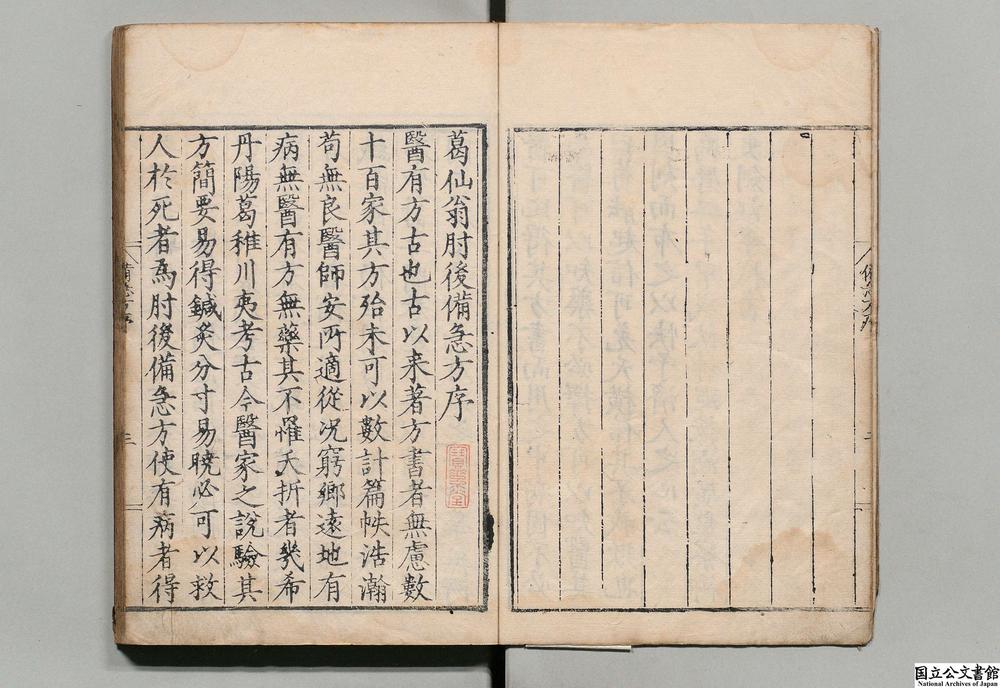 葛仙翁肘後備急方序
醫有方古也古以来著方書者無慮數
十百家其方殆未可以數計篇帙浩瀚
苟無良醫師安所適從况窮鄉遠地有
病無醫有方無藥其不罹夭折者㡬希
丹陽葛稚川夷考古今醫家之說驗其
方簡要易得鍼灸分寸易曉必可以救
人於死者爲肘後備急方使有病者得
国立公文書館
National Archives of Japan